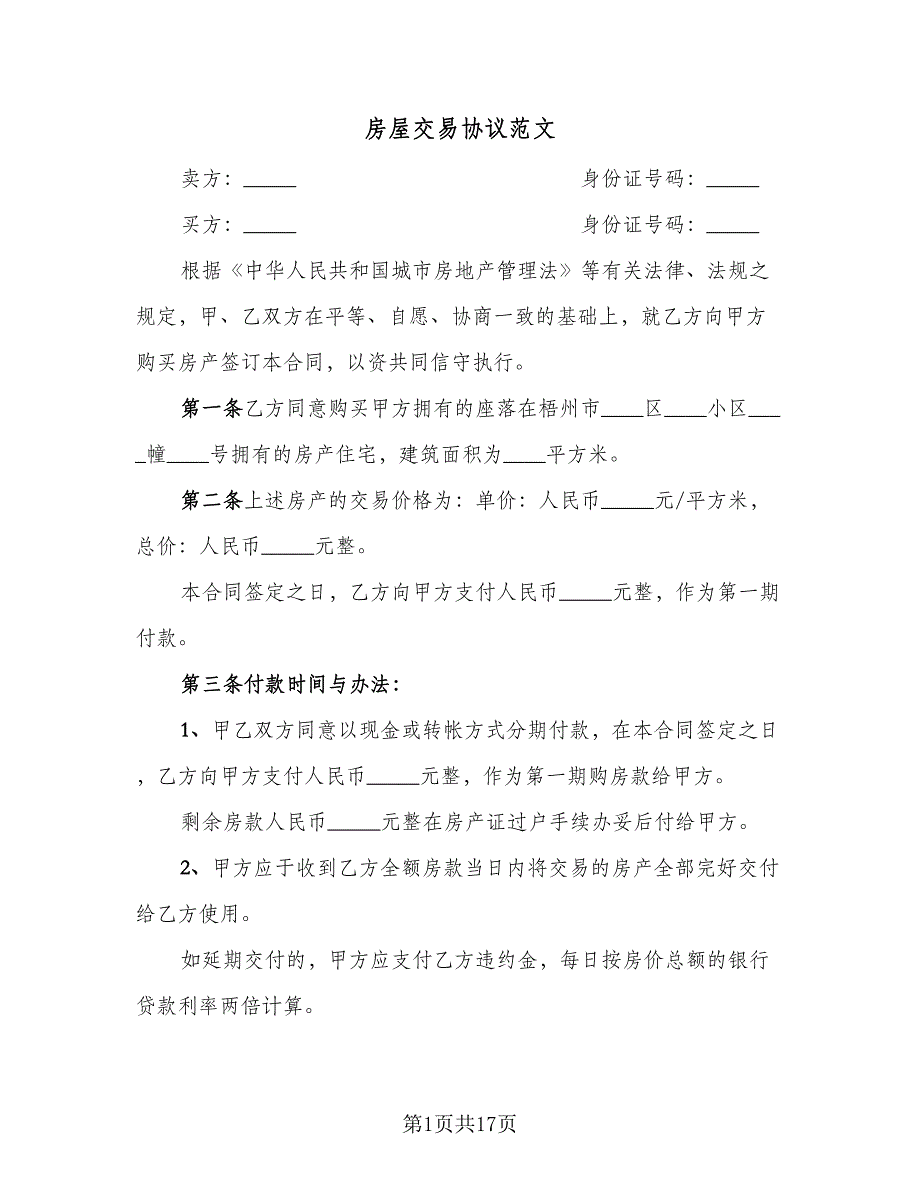 房屋交易协议范文
卖方：_____ 身份证号码：_____
买方：_____ 身份证号码：_____
根据《中华人民共和国城市房地产管理法》等有关法律、法规之
规定，甲、乙双方在平等、自愿、协商一致的基础上，就乙方向甲方
购买房产签订本合同，以资共同信守执行。
第一条乙方同意购买甲方拥有的座落在梧州市____区____小区___
_幢____号拥有的房产住宅，建筑面积为____平方米。
第二条上述房产的交易价格为：单价：人民币_____元/平方米，
总价：人民币_____元整。
本合同签定之日，乙方向甲方支付人民币_____元整，作为第一期
付款。
第三条付款时间与办法：
1、甲乙双方同意以现金或转帐方式分期付款，在本合同签定之日
，乙方向甲方支付人民币_____元整，作为第一期购房款给甲方。
剩余房款人民币_____元整在房产证过户手续办妥后付给甲方。
2、甲方应于收到乙方全额房款当日内将交易的房产全部完好交付
给乙方使用。
如延期交付的，甲方应支付乙方违约金，每日按房价总额的银行
贷款利率两倍计算。
第1页共17页